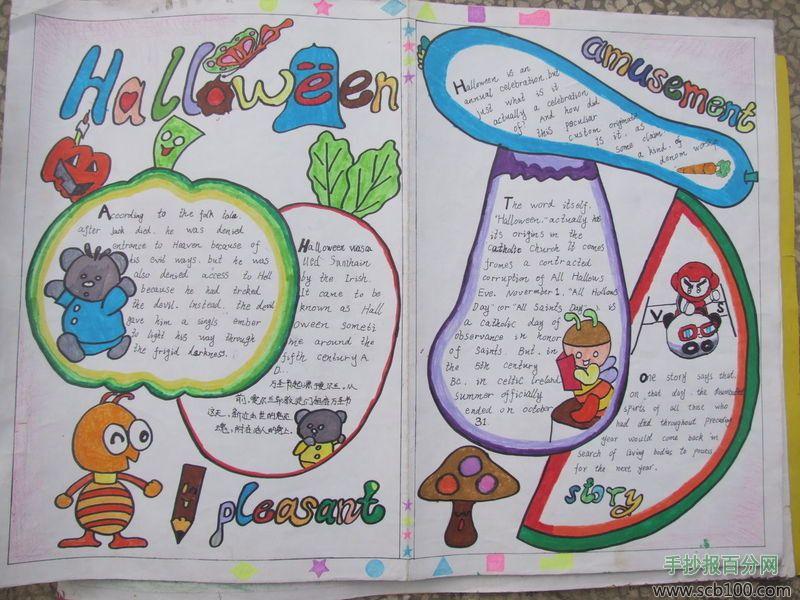 Halloween
According to the folk tale,
after Jack died, he was denied
entrance to Heaven because of
his evil ways, but he was
also denied access to Hell
because he had trcked
the devil. Instead, the devil
gave him a singls ember
to light his way through
the frigid darkness.
Halloween was a
lled Samhain
by the Irish.
It came to be
known as Hall
oween someti
me around the
fifth century A
D..
万圣节起源
前
这天，新近去世的
魂，附在活人的身上。
pleasant
amusement
Halloween is an
annual celebration, but
just what is it
actually a celebration
of? And how did
this peculiar
custom originate
Is it, as
some claim
a kind of
demon worship
The word itself,
"Halloween," actually has
its origins in the
catholic Church It comes
fromes a contracted
corruption of All Hallows
Eve. November 1. "All Hollows
Day" (or "All Saints Day") is
a catholic day of
observance in honor
of saints. But, in
the 5th century
BC, in celtic Ireland
summer officially
ended on october
31.
V S
One story says that,
on that day, the disembodied
spirits of all those who
had died throughout preceding
year would come back in
search of living bodies to possess
for the next year.
story
手抄报百分网
www.scb100.com